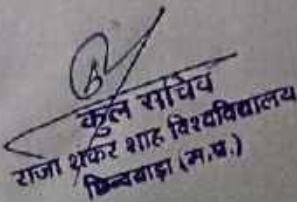 कुल सचिव
राजा शंकर शाह विश्वविद्यालय
छिन्दवाड़ा (म.प्र.)